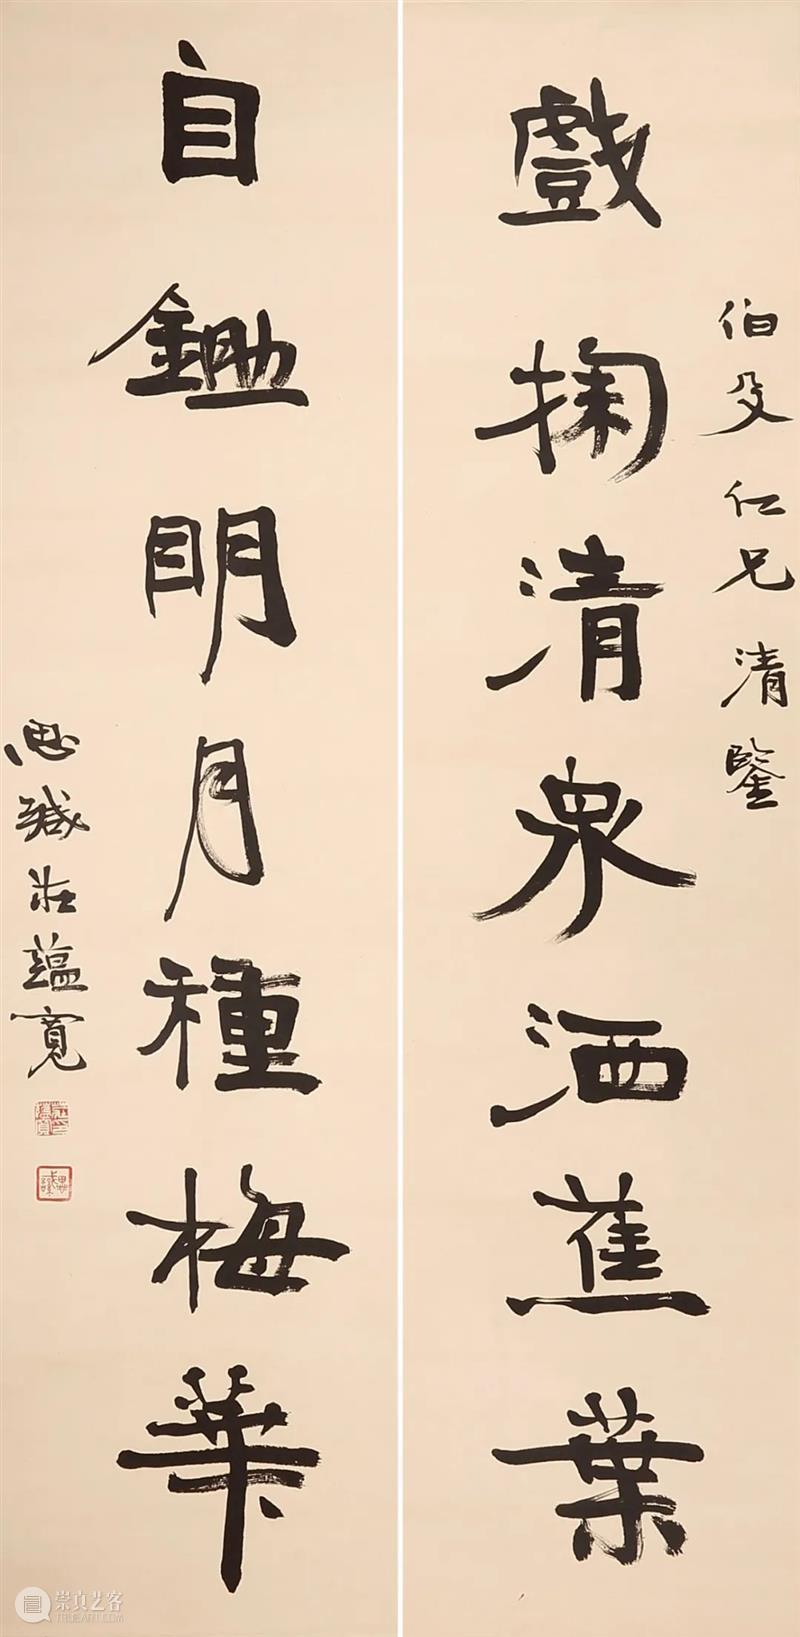 伯仁兄清鑒
戲掬清泉洒蕉葉
自鋤眀月種梅華
思緘莊蘊寬
崇真艺客
TRUEART.COM